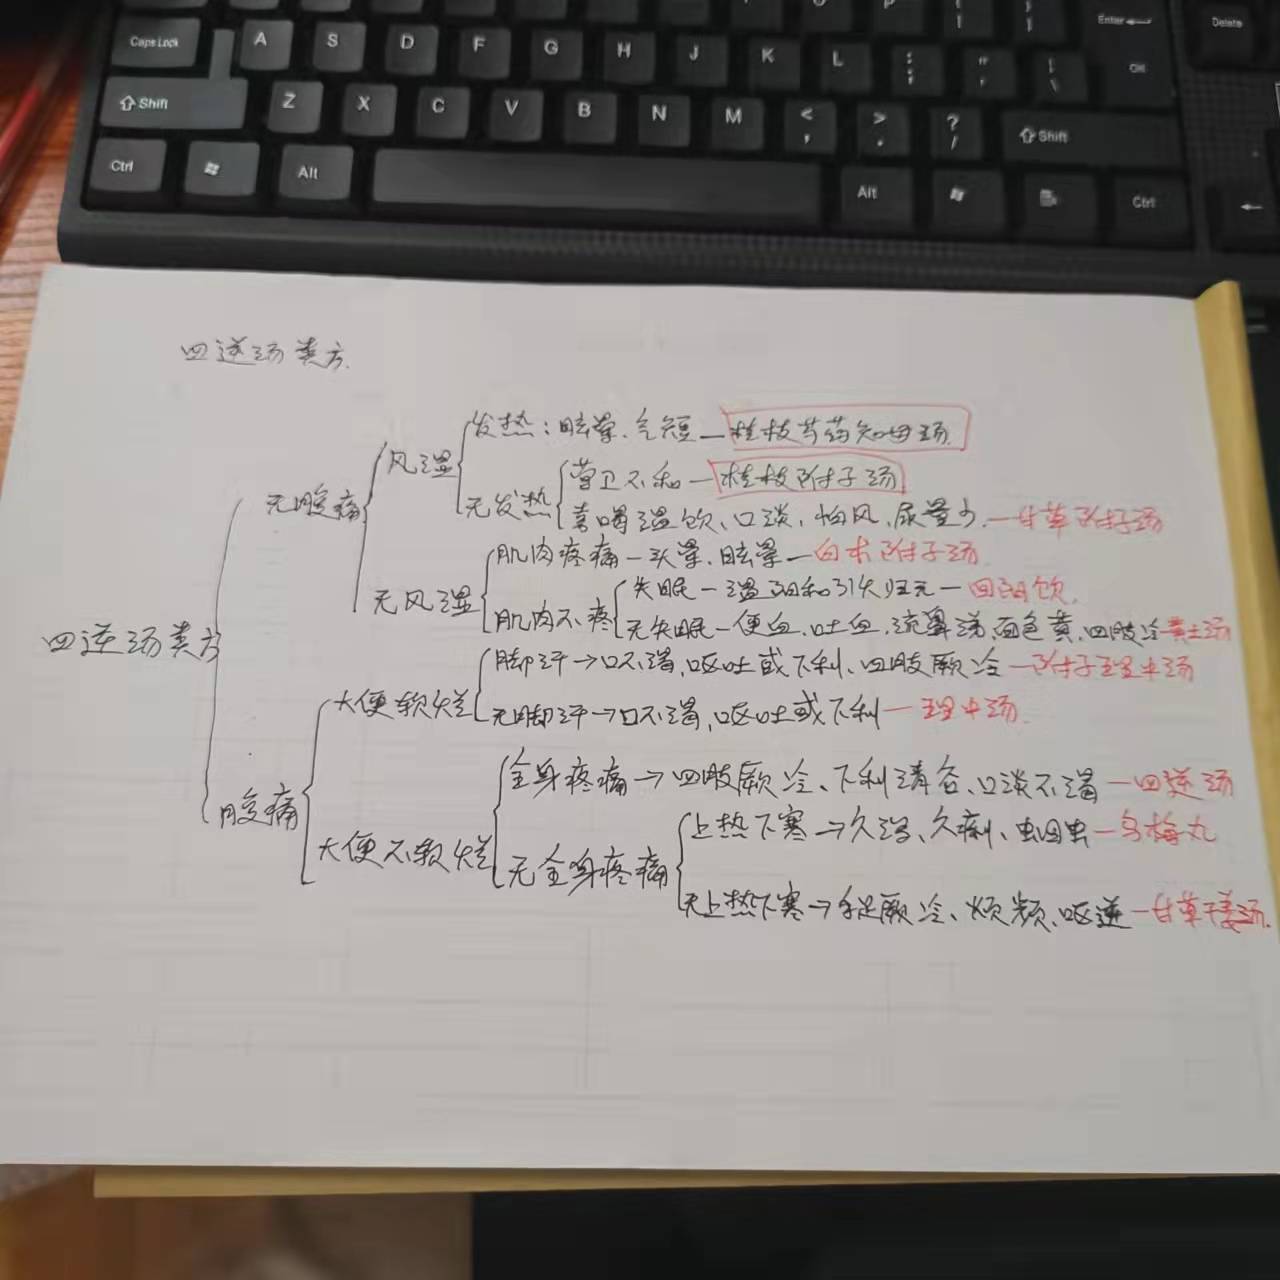 Caps Lock A S D F G H J K L : ; " ' | \ Enter Delete
Shift Z X C V B N M < , > . ? / Shift
Ctrl Alt Alt Ctrl
四逆汤类方.
发热：眩晕、气短—桂枝芍药知母汤
风湿
营卫不和—桂枝附子汤
无腹痛
无发热
喜喝温饮、口淡、怕风、尿量少.—甘草附子汤
肌肉疼痛—头晕、眩晕—白术附子汤
失眠—温阳和引火归元—回阳饮.
无风湿
肌肉不疼
无失眠—便血、吐血、流鼻涕、面色黄、四肢冷—黄土汤
四逆汤类方
脚汗→口不渴,呕吐或下利、四肢厥冷—附子理中汤
大便软烂
无脚汗→口不渴,呕吐或下利—理中汤.
全身疼痛→四肢厥冷、下利清谷、口淡不渴—四逆汤
腹痛
上热下寒→久泻、久痢、蛔虫—乌梅丸
大便不软烂
无全身疼痛
无上热下寒→手足厥冷、烦频、呕逆—甘草干姜汤.